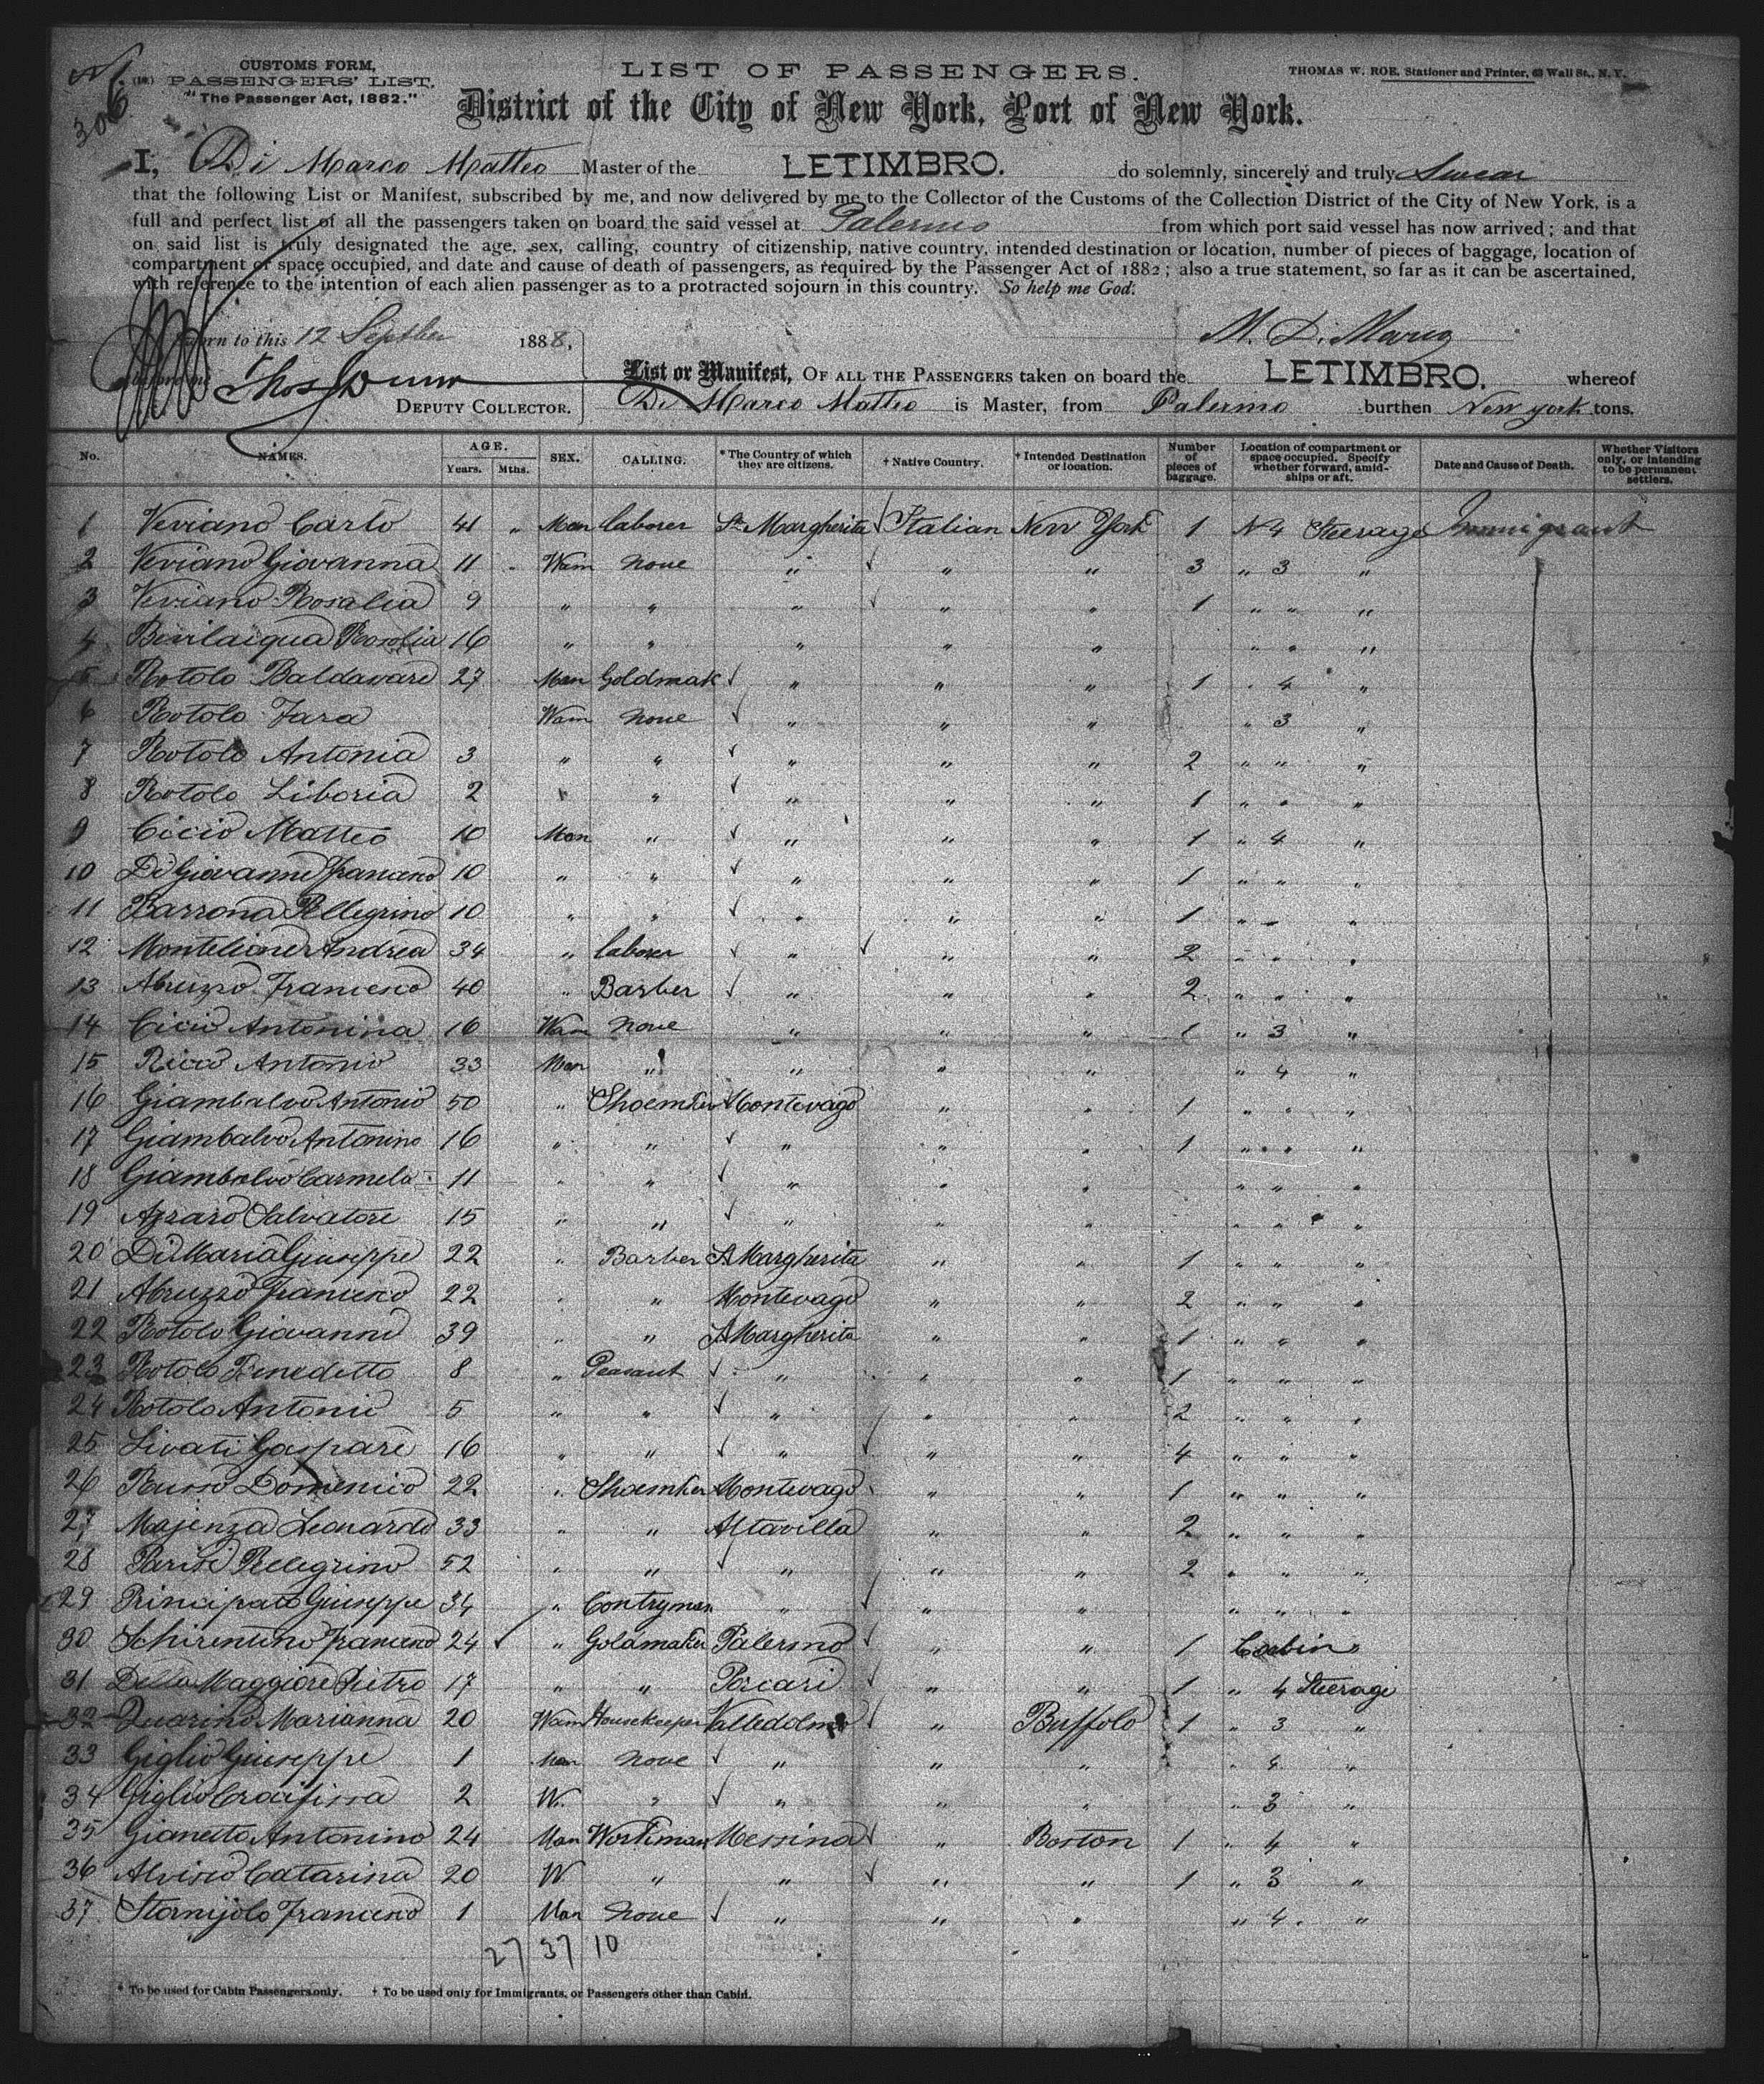 306
CUSTOMS FORM,
(18) PASSENGERS' LIST.
"The Passenger Act, 1882."
LIST OF PASSENGERS.
THOMAS W. ROE, Stationer and Printer, 63 Wall St., N. Y.
District of the City of New York, Port of New York.
I, Di Marco Matteo Master of the LETIMBRO. do solemnly, sincerely and truly Swear
that the following List or Manifest, subscribed by me, and now delivered by me to the Collector of the Customs of the Collection District of the City of New York, is a
full and perfect list of all the passengers taken on board the said vessel at Palermo from which port said vessel has now arrived; and that
on said list is truly designated the age, sex, calling, country of citizenship, native country, intended destination or location, number of pieces of baggage, location of
compartment or space occupied, and date and cause of death of passengers, as required by the Passenger Act of 1882; also a true statement, so far as it can be ascertained,
with reference to the intention of each alien passenger as to a protracted sojourn in this country. So help me God.
Sworn to this 12 Septber 1888, M. Di Marco
before me
DEPUTY COLLECTOR.
List or Manifest, OF ALL THE PASSENGERS taken on board the LETIMBRO. whereof
Di Marco Matteo is Master, from Palermo burthen New York tons.
No. NAMES. AGE. Years. Mths. SEX. CALLING. * The Country of which they are citizens. † Native Country. † Intended Destination or location. Number of pieces of baggage. Location of compartment or space occupied. Specify whether forward, amidships or aft. Date and Cause of Death. Whether Visitors only, or intending to be permanent settlers.
1 Viviano Carlo 41 " Man laborer Sta Margherita Italian New York 1 N 4 Steerage Immigrant
2 Viviano Giovanna 11 " Wam none " " " 3 " 3 "
3 Viviano Rosalia 9 " " " " " 1 " " "
4 Bivilacqua Rosolia 16 " " " " " " " "
5 Rotolo Baldassare 27 Man Goldmak " " " 1 " 4 "
6 Rotolo Zara Wam none " " " " 3 "
7 Rotolo Antonia 3 " " " " " 2 " " "
8 Rotolo Liboria 2 " " " " " 1 " " "
9 Cicio Matteo 10 Man " " " " 1 " 4 "
10 Di Giovanni Francesco 10 " " " " " 1 " " "
11 Barrona Pellegrino 10 " " " " " 1 " " "
12 Andrea 34 " laborer " " " 2 " " "
13 Abruzzo Francesco 40 " Barber " " " 2 " " "
14 Cicio Antonina 16 Wam none " " " 1 " 3 "
15 Ricco Antonio 33 Man " " " " " 4 "
16 Giambalvo Antonio 50 " Shoemker Montevago " " 1 " " "
17 Giambalvo Antonino 16 " " " " " 1 " " "
18 Giambalvo Carmelo 11 " " " " " " " "
19 Azzaro Salvatore 15 " " " " " " " "
20 Di Maria Giuseppe 22 " Barber S Margherita " " 1 " " "
21 Abruzzo Francesco 22 " " Montevago " " 2 " " "
22 Rotolo Giovanni 39 " " S Margherita " " 1 " " "
23 Rotolo Benedetto 8 " Peasant " " " 1 " " "
24 Rotolo Antonio 5 " " " " " 2 " " "
25 Livati Gaspare 16 " " " " " 4 " " "
26 Russo Domenico 22 " Shoemker Montevago " " 1 " " "
27 Majenza Leonardo 33 " " Altavilla " " 2 " " "
28 Parisi Pellegrino 52 " " " " " 2 " " "
29 Principato Giuseppe 34 " Contryman " " " " " "
30 Schirentino Francesco 24 " Goldmaker Palermo " " 1 Cabin
31 Della Maggiore Pietro 17 " " Porcari " " 1 " 4 Steerage
32 Quarino Marianna 20 Wam Housekeeper Valledolmo " Buffolo 1 " 3 "
33 Giglio Giuseppe 1 Man none " " " " 4 "
34 Giglio Crocifissa 2 W. " " " " " 3 "
35 Gianetto Antonino 24 Man Workman Messina " Boston 1 " 4 "
36 Alvisio Catarina 20 W " " " " 1 " 3 "
37 Stornijolo Francesco 1 Man none " " " " 4 "
27 37 10
* To be used for Cabin Passengers only. † To be used only for Immigrants, or Passengers other than Cabin.